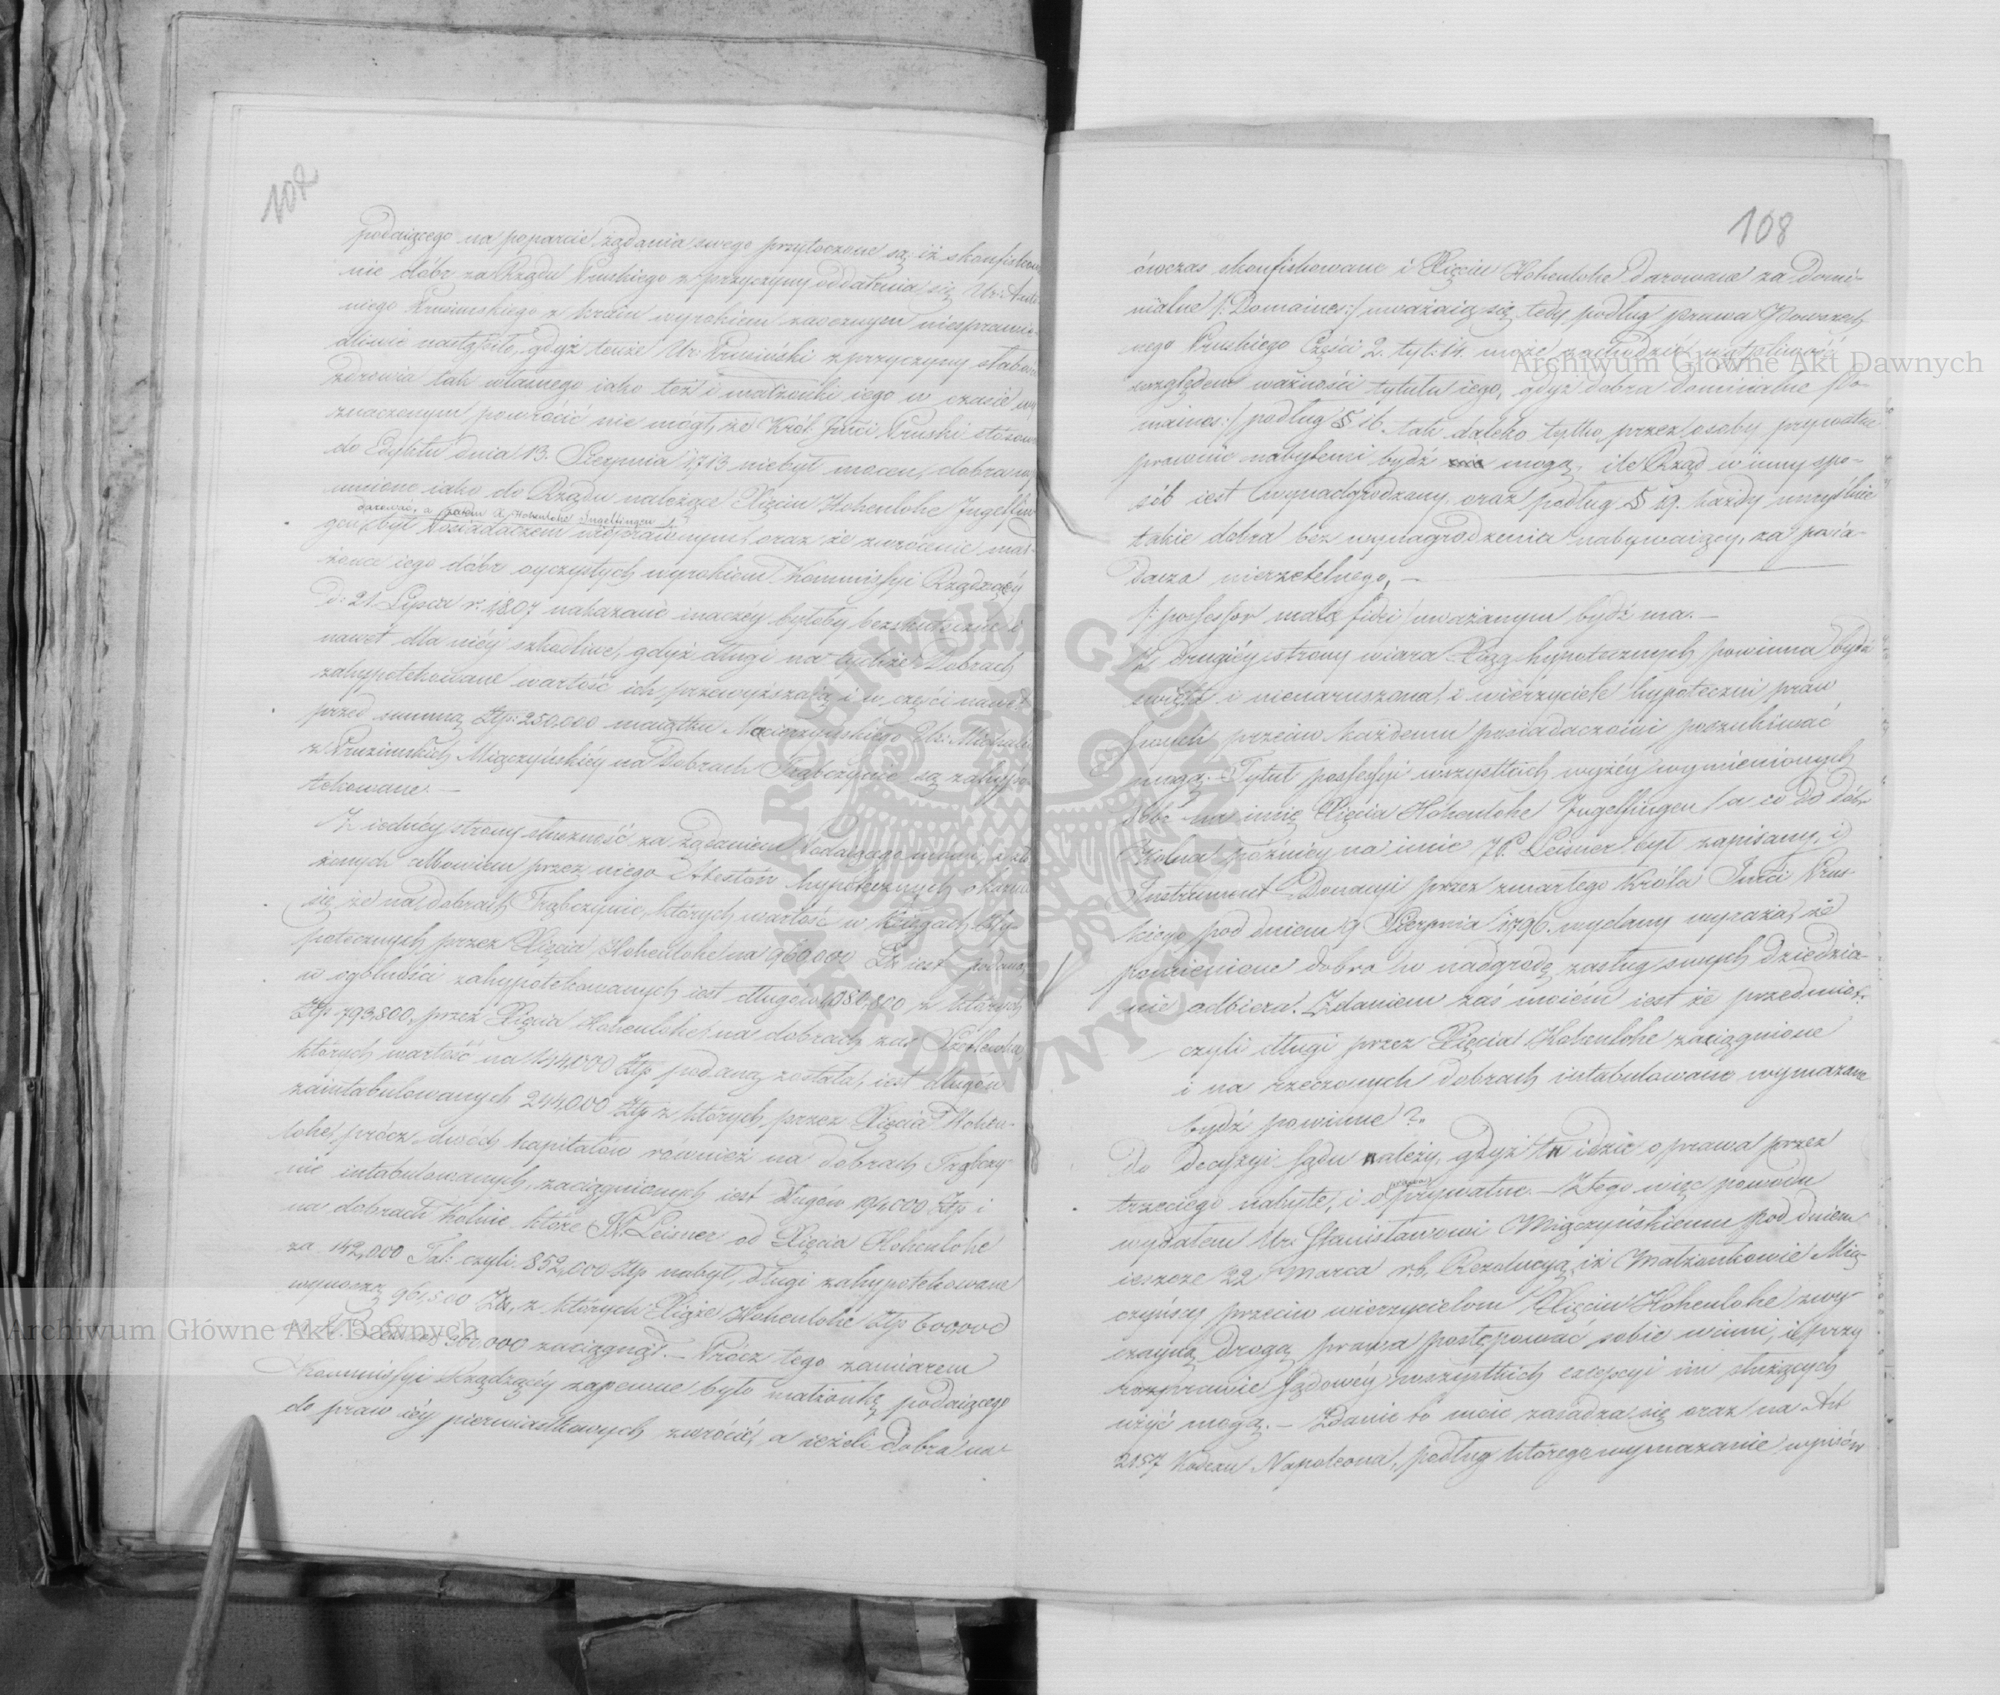 107
podaiącego na poparcie żądania swego przytoczone są, iż skonfiskowa
nie dóbr za Rządu Pruskiego z przyczyny oddalenia się Ur: Anto
niego Prusimskiego z kraiu wyrokiem zaocznym niesprawie-
dliwie nastąpiło, gdyż tenże Ur: Prusimski z przyczyny słabości
zdrowia tak własnego iako też i małżonki iego w czasie wy
znaczonym powrócić nie mógł, że Król Jmci Pruski stosownie
do Edyktu dnia 13. Sierpnia 1713 niebył mocen, dobra wspo
mnione iako do Rządu należące Xięciu Hohenlohe Ingelfin
darować, a zatém X. Hohenlohe Ingelfingen
gen, był Posiadaczem nieprawnym, oraz że zwrócenie mał-
żonce iego dóbr oyczystych wyrokiem Kommissyi Rządzącéy
D: 21 Lipca r: 1807 nakazane inaczéy byłoby bezskuteczne i
nawet dla niéy szkodliwe, gdyż długi na tychże Dobrach
zahypotekowane wartość ich przewyższaią i w części nawet
przed summą Złp: 250,000 maiątku Macierzyńskiego Elż: Michali
z Prusimskich Miączyńskiéy na Dobrach Trąbczynie są zahypo
tekowane. —
Z iednéy strony słuszność za żądaniem Podaiącego mówi, z zło
żonych albowiem przez niego Attestów hypotecznych okazuie
się, że na Dobrach Trąbczynie, których wartość w Xięgach Hy-
potecznych przez Xięcia Hohenlohe na 960,000 Zł: iest podana,
w ogólności zahypotekowanych iest długów 1080,800 z których
Złp 793,800, przez Xięcia Hohenlohe, na dobrach zaś
których wartość na 144,000 Złp podaną została, iest długów
zaintabulowanych 244,000 Złp z których przez Xięcia Hohen-
lohe, prócz dwóch kapitałów również na dobrach Trąbczy-
nie intabulowanych, zaciągnionych iest Długów 194,000 Złp i
na dobrach Kolnie, które P. Leisner od Xięcia Hohenlohe
za 142,000 Tal: czyli 852,000 Złp nabył, długi zahypotekowane
wynoszą 961,500 Zł:, z których Xiąże Hohenlohe Złp 600,000
300,000 zaciągnął. — Prócz tego zamiarem
Kommissyi Rządzącéy zapewne było małżonkę podaiącego
do praw iéy pierwiastkowych zwrócić, a ieżeli dobra na-
108
ówczas skonfiskowane i Xięciu Hohenlohe darowane za Domi-
nialne /: Domaines :/ uważaią się, tedy podług prawa Powszech
nego Pruskiego Części 2. tyt: 14. może zachodzić wątpliwość
względem ważności tytułu iego, gdyż dobra Dominialne /: Do-
maines :/ podług § 16. tak daleko tylko przez osoby prywatne
prawnie nabytemi bydź mogą, ile Rząd w inny spo-
sób iest wynadgrodzony, oraz podług § 19. każdy umyślnie
takie dobra bez wynagrodzenia nabywaiący, za posia-
dacza nierzetelnego, —
/: possessor malæ fidei :/ uważanym bydź ma. —
Z drugiéy strony wiara Xiąg hypotecznych powinna bydź
święta i nienaruszona, i wierzyciele hypoteczni praw
swych przeciw każdemu posiadaczowi poszukiwać
mogą. Tytuł possessyi wszystkich wyżéy wymienionych
dóbr na imię Xięcia Hohenlohe Ingelfingen, a co do dóbr
Kolna późniéy na imie P. Leisner był zapisany, i
Instrument Donacyi przez zmarłego Króla Jmci Prus-
kiego pod dniem 9 Sierpnia 1796. wydany wyraża, że
pomienione dobra w nadgrodę zasług swych dziedzicz-
nie odbiera. Zdaniem zaś moiém iest że przedmiot.
czyli długi przez Xięcia Hohenlohe zaciągnione
i na rzeczonych dobrach intabulowane wymazane
bydź powinne?.
do Decyzyi Sądu należy, gdyż tu idzie o prawa przez
trzeciego nabyte, i o prywatne. — Z tego więc powodu
wydałem Ur: Stanisławowi Miączyńskiemu pod dniem
ieszcze 22 Marca r. b. Rezolucyą, iż Małżonkowie Mią-
czyńscy przeciw wierzycielom Xięcia Hohenlohe zwy-
czayną drogą prawa postępować sobie winni, i przy
rozprawie Sądowéy wszystkich excepcyi im służących
użyć mogą. — Zdanie to moie zasadza się oraz na Art
2157 Kodexu Napoleona, podług którego wymazanie wpisów
Archiwum Główne Akt Dawnych
Archiwum Główne Akt Dawnych
ARCHIWUM GŁÓWNE AKT DAWNYCH